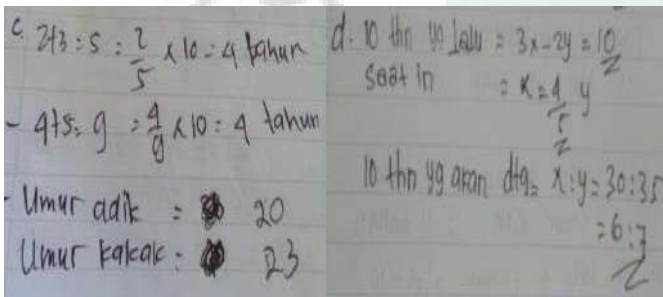 c. 2+3 = 5 = 2/5 x 10 = 4 tahun
- 4+5 = 9 = 4/9 x 10 = 4 tahun
- Umur adik = 20
Umur kakak = 23
d. 10 thn yg lalu = 3x - 2y = 10
saat in = x = 4/5 y
10 thn yg akan dtg = x : y = 30 : 35
= 6 : 7